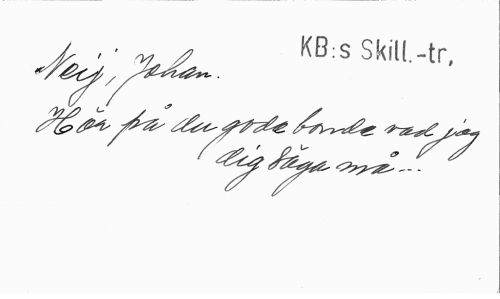 KB:s Skill.-tr.
Neij, Johan.
Hör på du gode bonde vad jag
dig säga må...